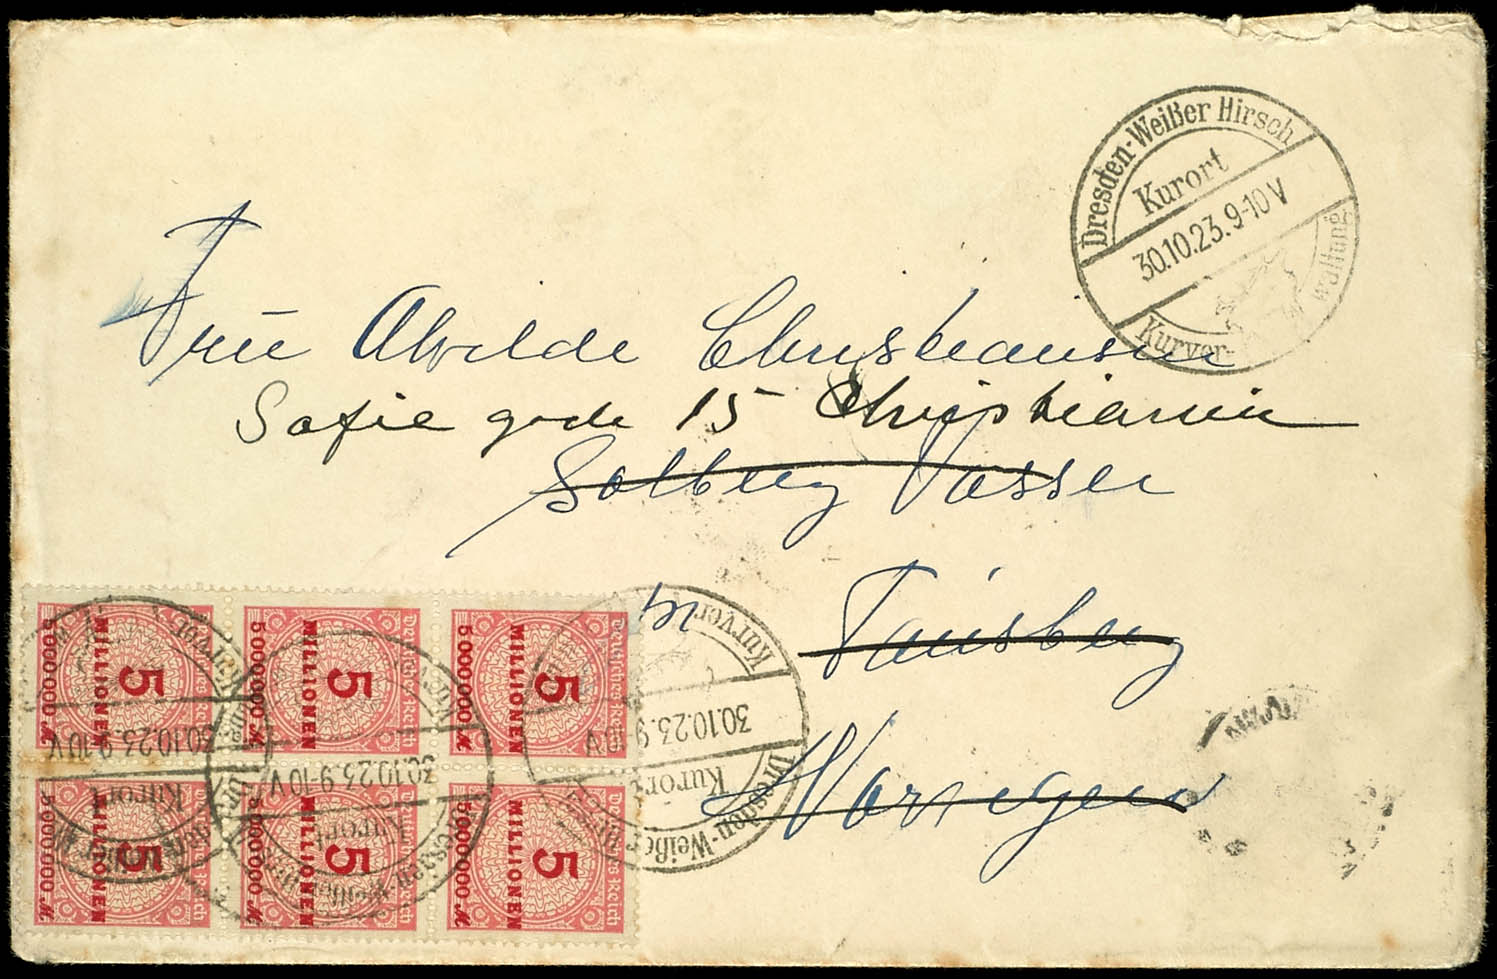 Dresden-Weißer Hirsch
Kurort
30.10.23.9-10 V
Kurver-
waltung
Fru Alvilde Christiansen
Sofie gade 15 Christiania
Solberg Vasser
Tønsberg
Norwegen
Deutsches Reich
5 MILLIONEN
5000000 M
Deutsches Reich
5 MILLIONEN
5000000 M
Deutsches Reich
5 MILLIONEN
5000000 M
Deutsches Reich
5 MILLIONEN
5000000 M
Deutsches Reich
5 MILLIONEN
5000000 M
Deutsches Reich
5 MILLIONEN
5000000 M
30.10.23.9-10 V
Kurort
30.10.23.9-10 V
Kurort
Dresden-Weißer Hirsch
Kurort
30.10.23.9-10 V
Kurver-